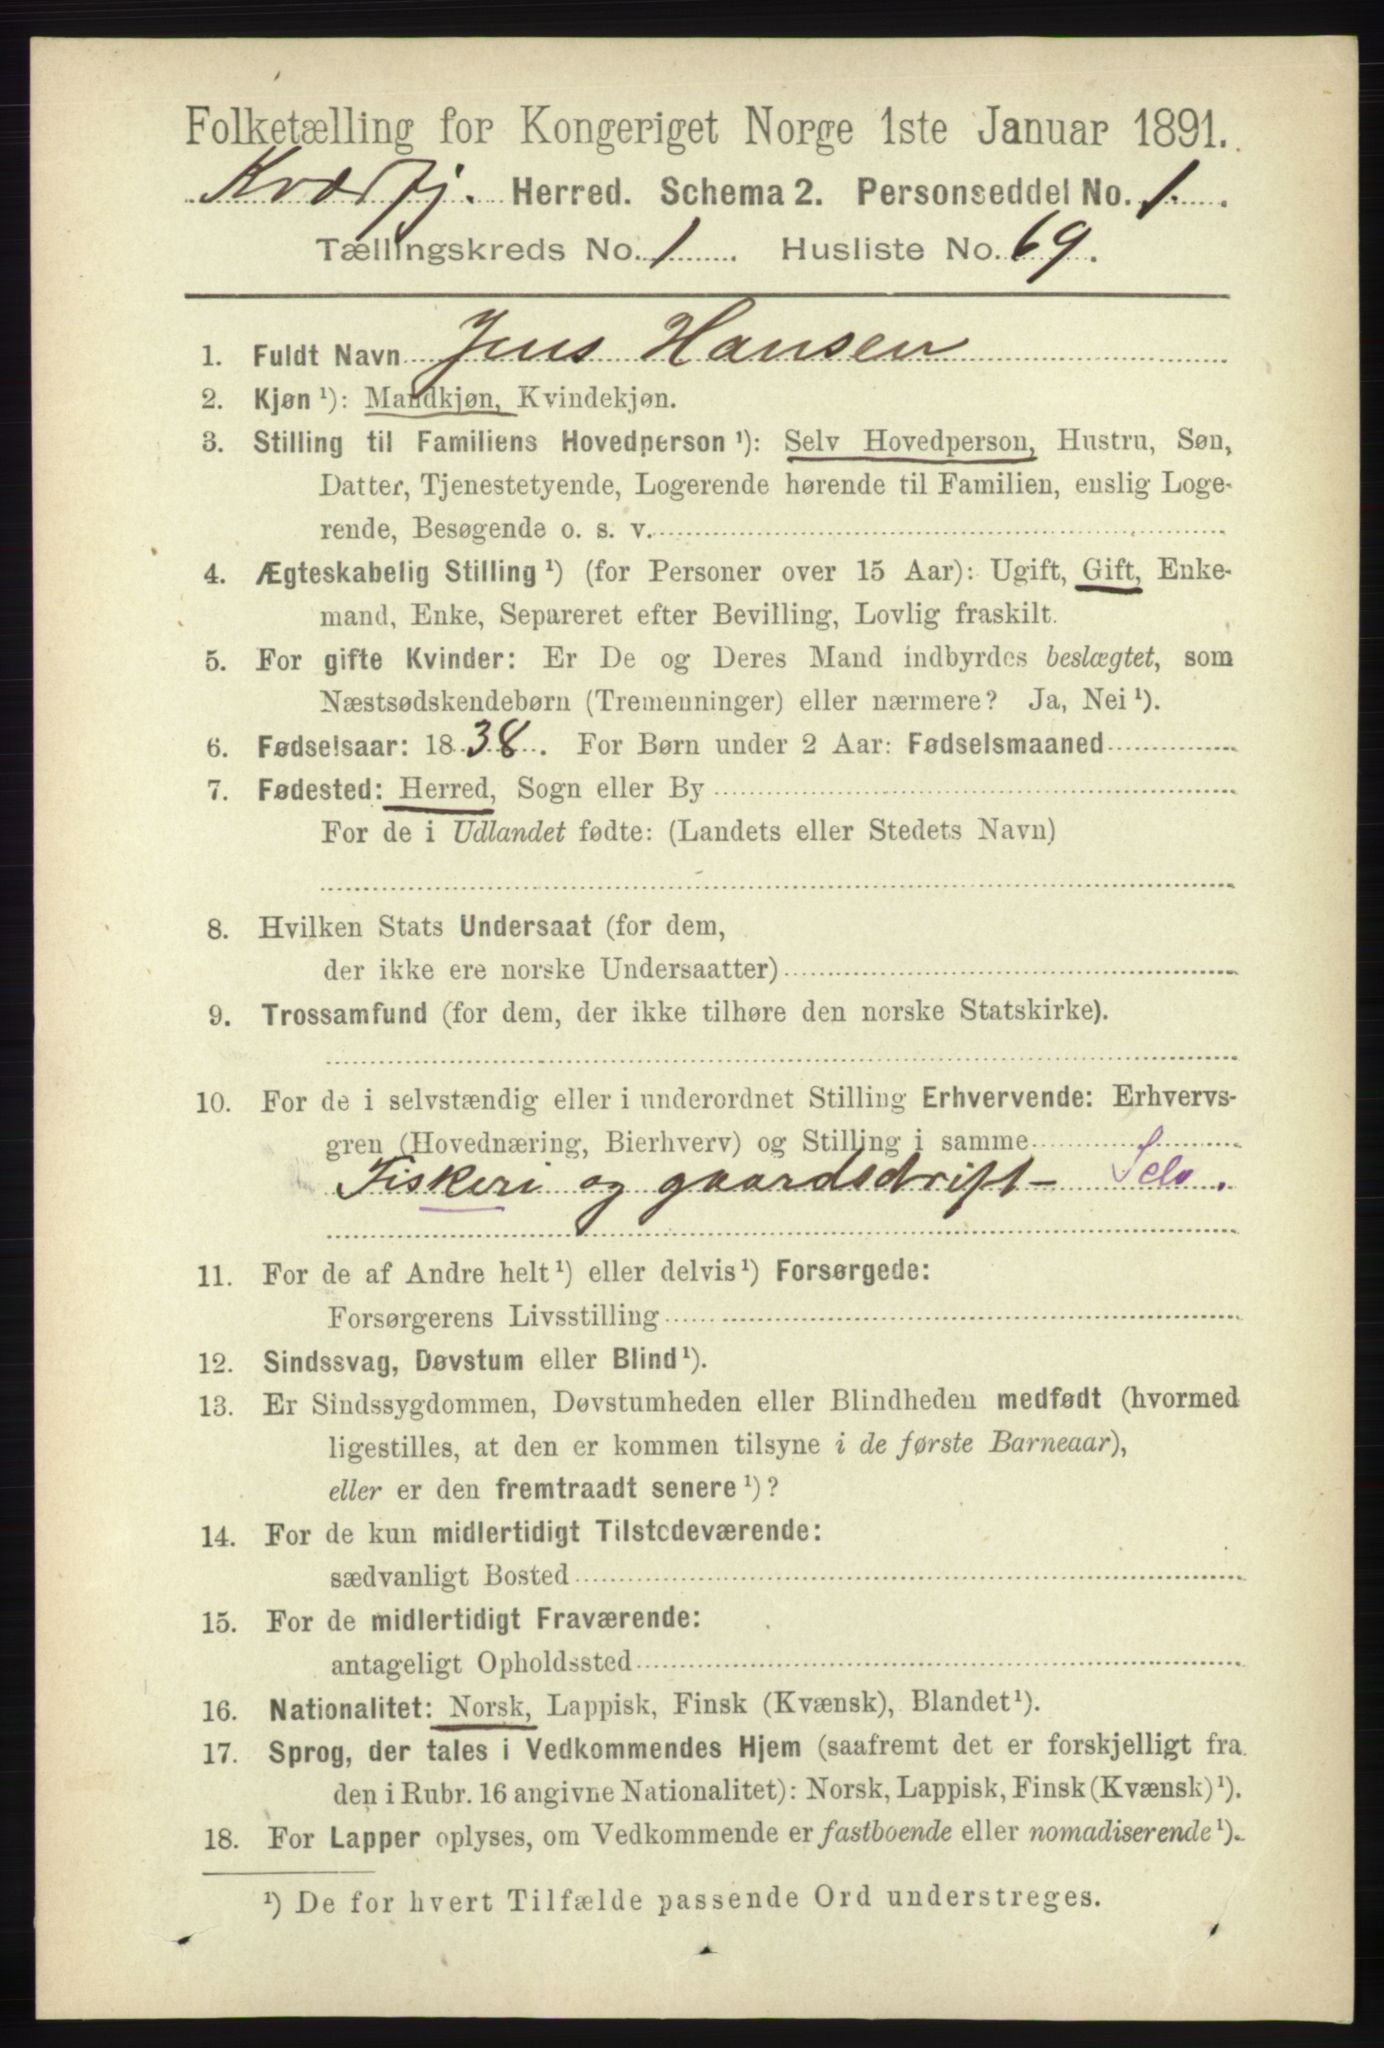 Folketælling for Kongeriget Norge 1ste Januar 1891.
Kværfj. Herred. Schema 2. Personseddel No. 1.
Tællingskreds No. 1 Husliste No. 69.
1. Fuldt Navn Jens Hansen
2. Kjøn ¹): Mandkjøn, Kvindekjøn.
3. Stilling til Familiens Hovedperson ¹): Selv Hovedperson, Hustru, Søn,
Datter, Tjenestetyende, Logerende hørende til Familien, enslig Loge-
rende, Besøgende o. s. v.
4. Ægteskabelig Stilling ¹) (for Personer over 15 Aar): Ugift, Gift, Enke-
mand, Enke, Separeret efter Bevilling, Lovlig fraskilt.
5. For gifte Kvinder: Er De og Deres Mand indbyrdes beslægtet, som
Næstsødskendebørn (Tremenninger) eller nærmere? Ja, Nei ¹).
6. Fødselsaar: 1838. For Børn under 2 Aar: Fødselsmaaned
7. Fødested: Herred, Sogn eller By
For de i Udlandet fødte: (Landets eller Stedets Navn)
8. Hvilken Stats Undersaat (for dem,
der ikke ere norske Undersaatter)
9. Trossamfund (for dem, der ikke tilhøre den norske Statskirke).
10. For de i selvstændig eller i underordnet Stilling Erhvervende: Erhvervs-
gren (Hovednæring, Bierhverv) og Stilling i samme
Fiskeri og gaardsdrift - Selv.
11. For de af Andre helt ¹) eller delvis ¹) Forsørgede:
Forsørgerens Livsstilling
12. Sindssvag, Døvstum eller Blind ¹).
13. Er Sindssygdommen, Døvstumheden eller Blindheden medfødt (hvormed
ligestilles, at den er kommen tilsyne i de første Barneaar),
eller er den fremtraadt senere ¹)?
14. For de kun midlertidigt Tilstedeværende:
sædvanligt Bosted
15. For de midlertidigt Fraværende:
antageligt Opholdssted
16. Nationalitet: Norsk, Lappisk, Finsk (Kvænsk), Blandet ¹).
17. Sprog, der tales i Vedkommendes Hjem (saafremt det er forskjelligt fra
den i Rubr. 16 angivne Nationalitet): Norsk, Lappisk, Finsk (Kvænsk) ¹).
18. For Lapper oplyses, om Vedkommende er fastboende eller nomadiserende ¹).
¹) De for hvert Tilfælde passende Ord understreges.